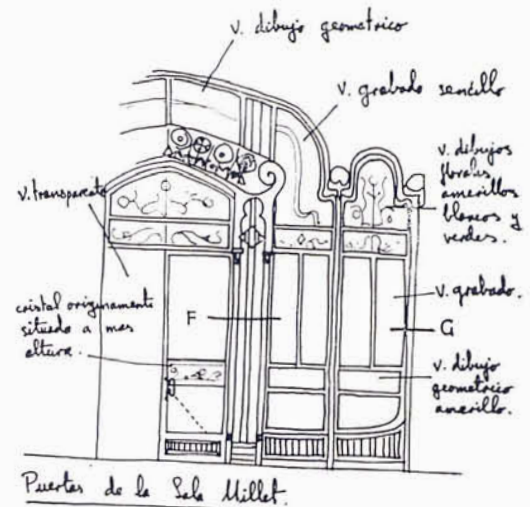 v. dibujo geometrico
v. grabado sencillo
v. dibujos
florales
amarillos
blancos y
verdes.
v. transparente
cristal originamente
situado a mas
altura.
F
v. grabado.
G
v. dibujo
geometrico
amarillo.
Puertas de la Sala Millet.